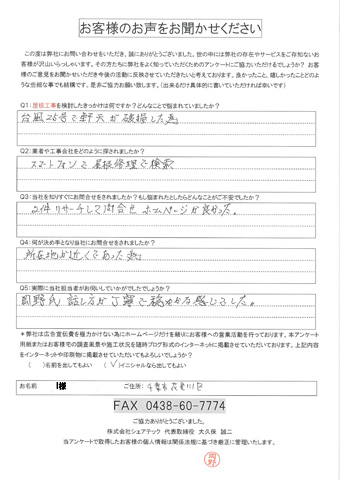 お客様のお声をお聞かせください
この度は弊社にお問い合わせをいただき、誠にありがとうございました。世の中には弊社の存在やサービスをご存知ないお
客様が沢山いらっしゃいます。その方たちに弊社をよく知っていただくためのアンケートにご協力いただけるでしょうか？お客
様のご意見をお聞かせいただき今後の活動に反映させていただきたいと考えております。良かったこと、嬉しかったことどのよ
うな些細な事でも結構です。是非ご協力お願い致します。(出来るだけ具体的に書いていただければ幸いです)
Q1：屋根工事を検討したきっかけは何ですか？どんなことで悩まれていましたか？
台風25号で軒天が破損した為
Q2：業者や工事会社をどのように探されましたか？
スマートフォンで屋根修理で検索
Q3：当社を知りすぐにお問合せをされましたか？もし悩まれたとしたらどんなことがご不安でしたか？
2件リサーチして問合せ ホームページが良かった。
Q4：何が決め手となり当社にお問合せをされましたか？
所在地が近くであった為
Q5：実際に当社担当者がお伺いしていかがでしたでしょうか？
岡野氏 話し方が丁寧で 感じでした。
＊弊社は広告宣伝費を極力かけない為にホームページだけを頼りにお客様への営業活動を行っております。本アンケート
用紙またはお客様宅の調査風景や施工状況を随時ブログ形式のインターネットに掲載させていただいております。上記内容
をインターネットや印刷物に掲載させていただいてもよろしいでしょうか？
( )名前を出してもよい (✓)イニシャルなら出してもよい
お名前 I様 ご住所：千葉市花見川区
FAX 0438-60-7774
ご協力ありがとうございました。
株式会社シェアテック 代表取締役 大久保 誠二
当アンケートで取得したお客様の個人情報は関係法規に基づき厳正に管理いたします。
岡野